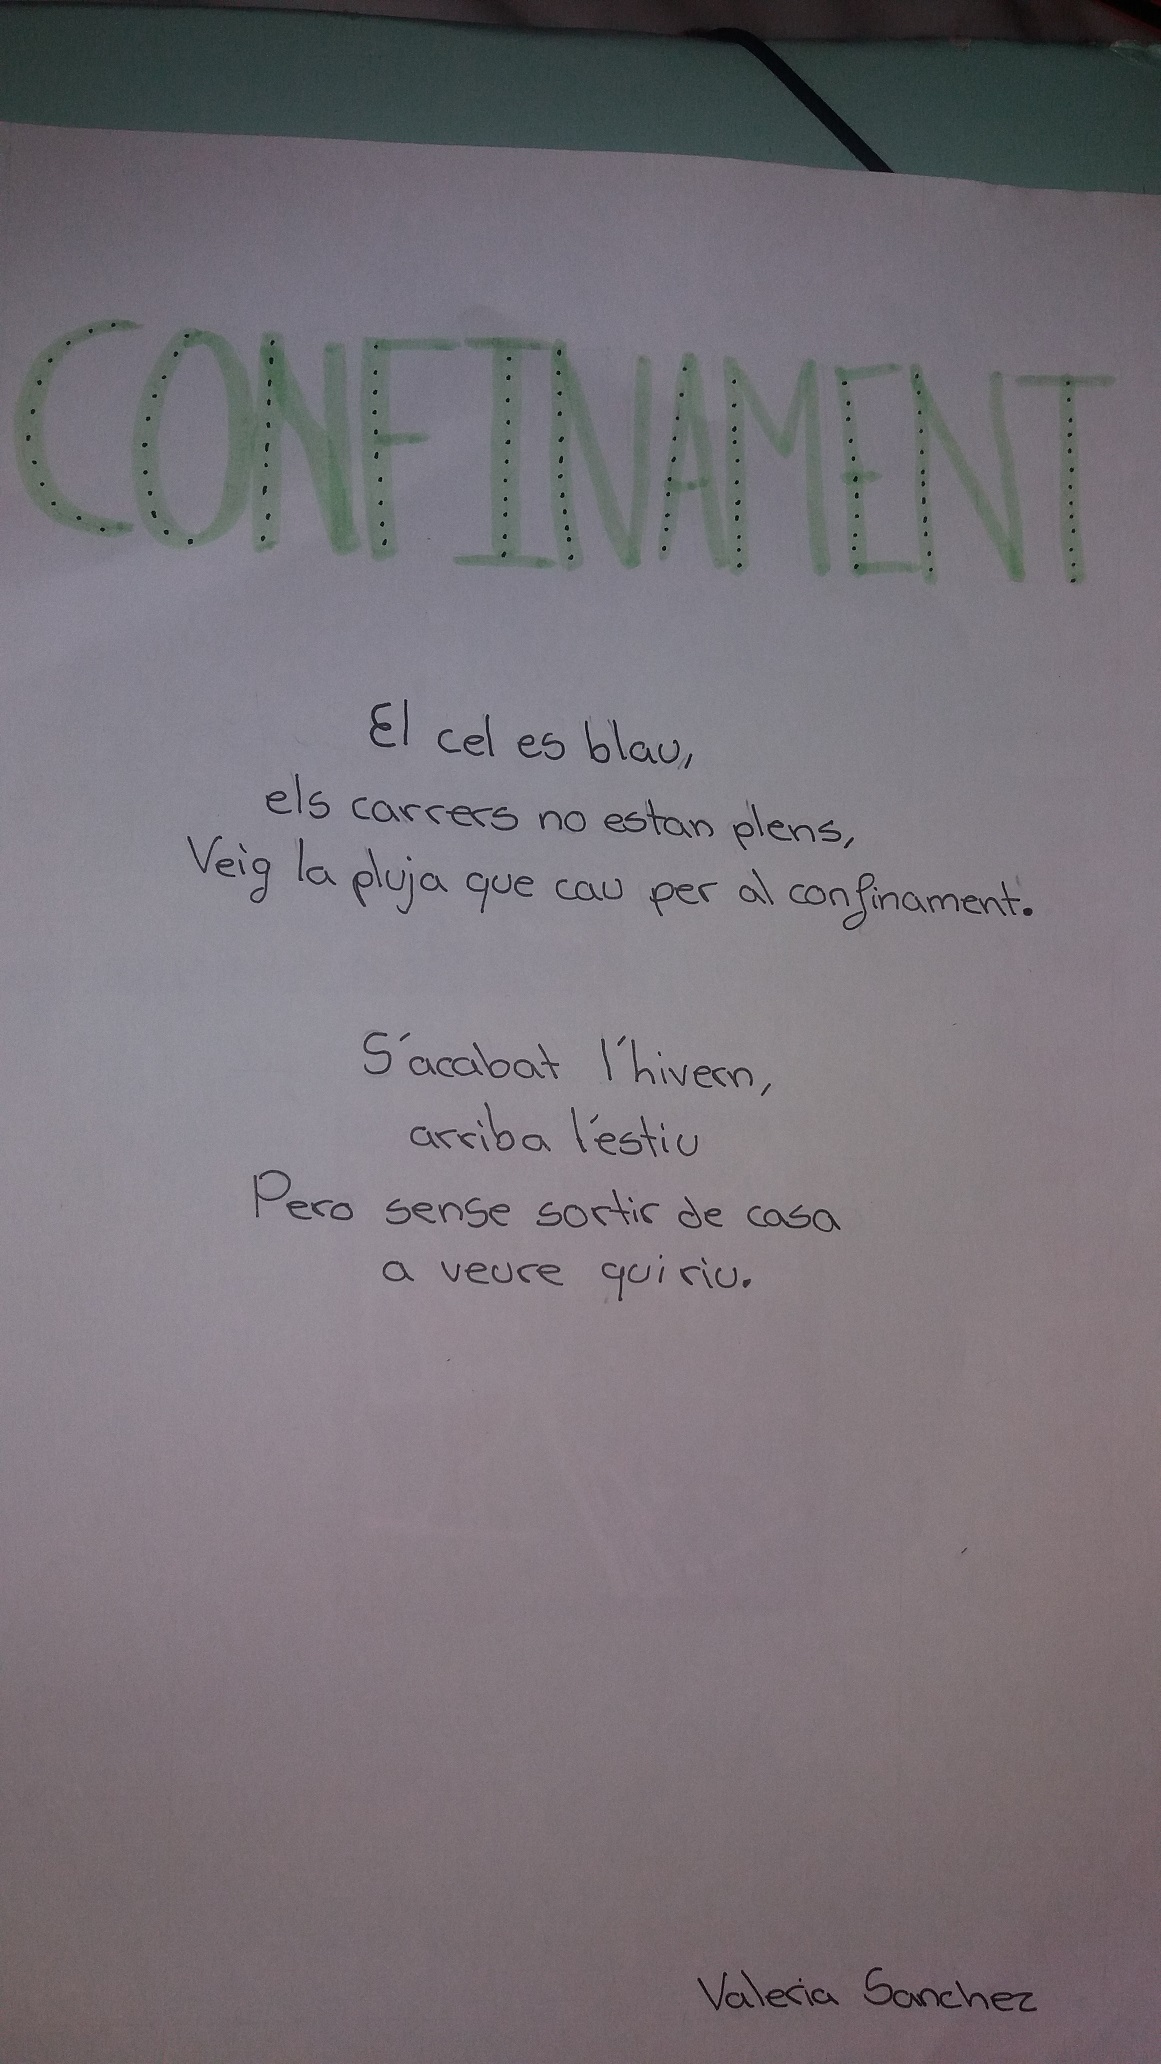 CONFINAMENT
El cel es blau,
els carrers no estan plens,
Veig la pluja que cau per al confinament.
S'acabat l'hivern,
arriba l'estiu
Pero sense sortir de casa
a veure qui riu.
Valeria Sanchez